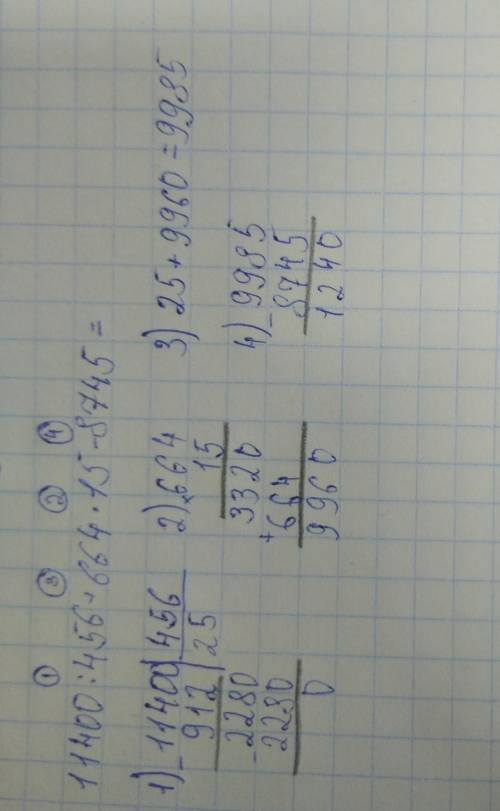 ① ③ ② ④
11400:456+664·15-8745=
1) -11400|456
912|25
-2280
2280
0
2) ×664
15
3320
+664
9960
3) 25+9960=9985
4) -9985
8745
1240